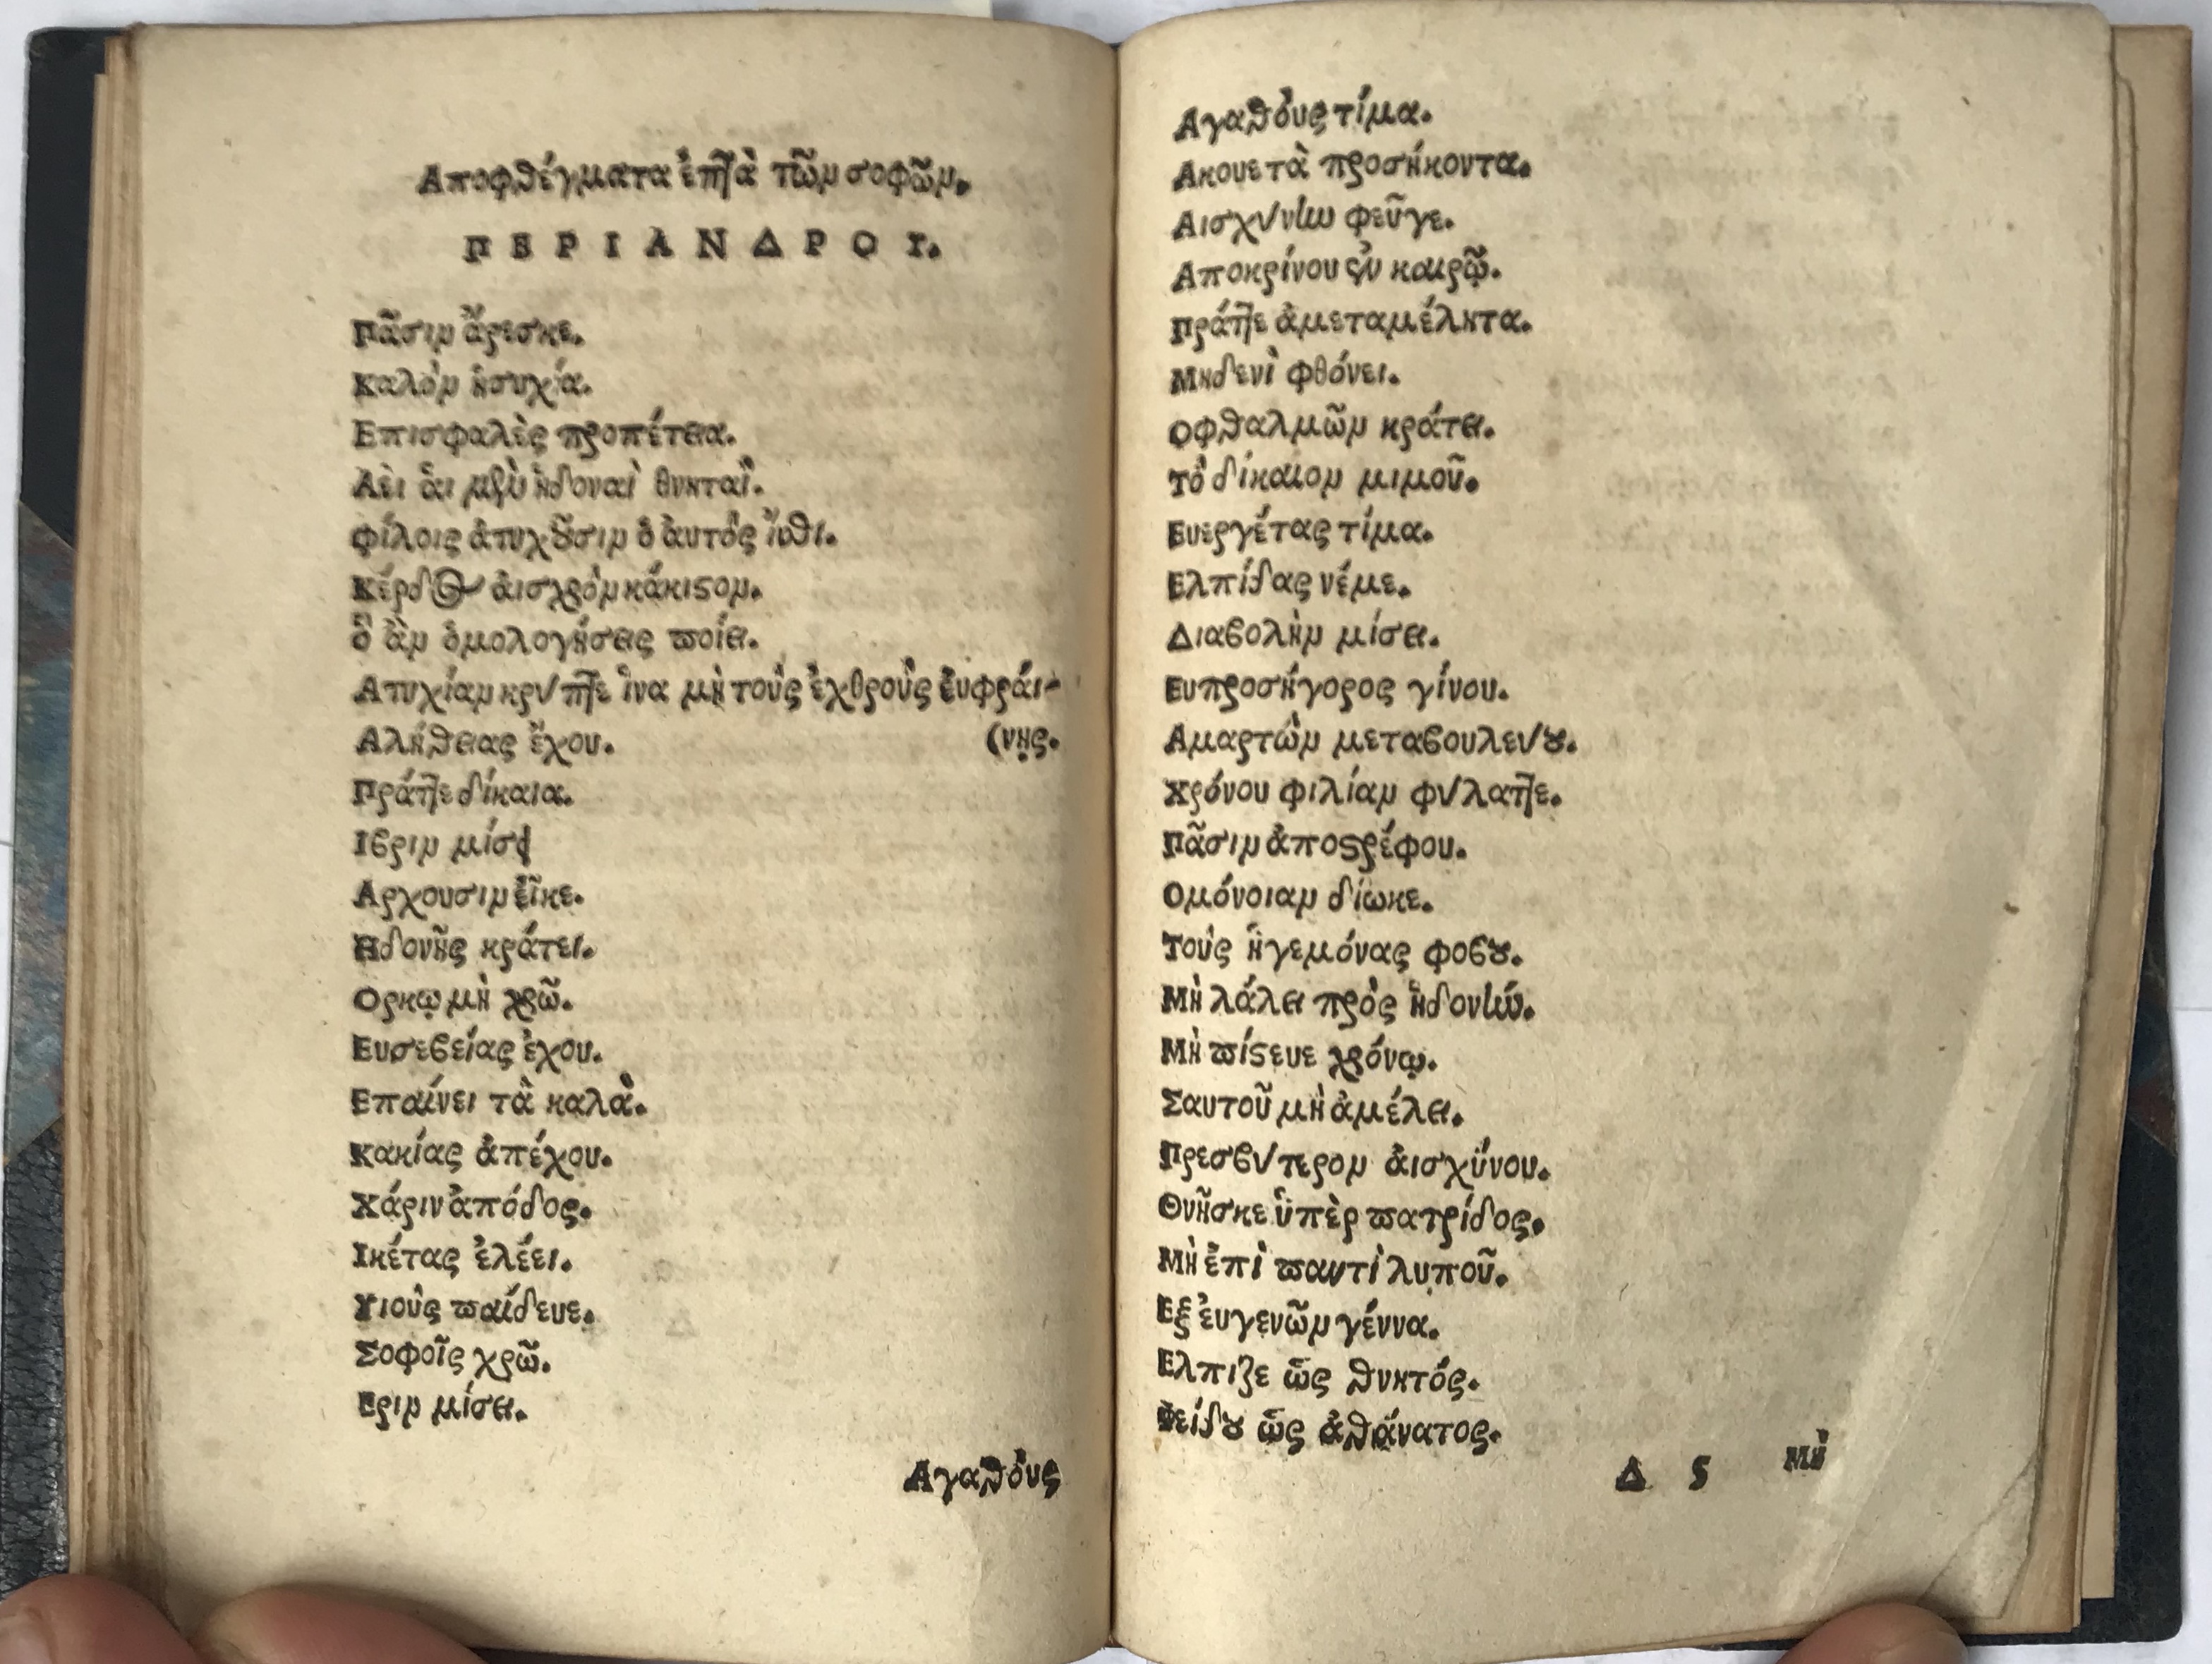 Αποφθέγματα ἑπτὰ τῶν σοφῶν.
ΠΕΡΙΑΝΔΡΟΥ.
Πᾶσιν ἄρεσκε.
Καλὸν ἡσυχία.
Επισφαλὲς προπέτεια.
Αὲι ἁι μὲν ἡδοναὶ θνηταὶ.
Φίλοις ἀτυχȣ͂σιν ὁ ἀυτὸς ἴσθι.
Κέρδος ἀισχρὸν κάκιϛον.
ὃ ἂν ὁμολογήσεις ϖοίει.
Ατυχίαν κρύπτε ἵνα μὴ τοὺς ἐχθροὺς ἐυφράι-
Αλήθειας ἔχου. (νῃς.
Πράττε δίκαια.
Ιβριν μίσει
Αρχουσιν εἶκε.
Ηδονῆς κράτει.
Ορκῳ μὴ χρῶ.
Ευσεβείας ἔχου.
Επαίνει τὰ καλὰ.
Κακίας ἀπέχου.
Χάριν ἀπόδος.
Ικέτας ἐλέει.
Υιοὺς ϖαίδευε.
Σοφοῖς χρῶ.
Εριν μίσει.
Αγαθὸυς
Αγαθὸυς τίμα.
Ακουε τὰ προσήκοντα.
Αισχύνην φεῦγε.
Αποκρίνου ἐν καιρῷ.
Πράττε ἀμεταμέλητα.
Μηδενὶ φθόνει.
Οφθαλμῶν κράτει.
Τὸ δίκαιον μιμοῦ.
Ευεργέτας τίμα.
Ελπίδας νέμε.
Διαβολὴν μίσει.
Ευπροσήγορος γίνου.
Αμαρτὼν μεταβουλεύȣ.
Χρόνου φιλίαν φύλαττε.
Πᾶσιν ἀποϛρέφου.
Ομόνοιαν δίωκε.
Τοὺς ἡγεμόνας φοβȣ.
Μὴ λάλει πρὸς ἡδονήν.
Μὴ ϖίϛευε χρόνῳ.
Σαυτοῦ μὴ ἀμέλει.
Πρεσβύτερον ἀισχύνου.
Θνῆσκε ὑπὲρ ϖατρίδος.
Μὴ ἐπὶ ϖαντὶ λυποῦ.
Εξ ἐυγενῶν γέννα.
Ελπιζε ὡς θνητός.
Φείδȣ ὡς ἀθάνατος.
Δ 5 Μὴ